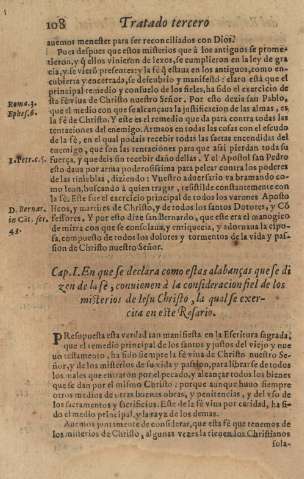 108 Tratado tercero
auemos menester para ser reconciliados con Dios.
Pues despues que estos misterios que à los antiguos se prome-
tieron, y q̃ ellos vinieron de lexos, se cumplieron en la ley de gra
cia, y se vierō presentes: y la fè q̃ estaua en los antiguos, como en-
cubierta y encerrada, se descubrio y manifestò: claro està que el
principal remedio y consuelo de los fieles, ha sido el exercicio de
esta fè viua de Christo nuestro Señor. Por esto dezia san Pablo,
que el medio con que se alcançaua la justificacion de las almas, es
la fè de Christo. Y este es el remedio que da para contra todas las
tentaciones del enemigo. Armaos en todas las cosas con el escudo
de la fè, en el qual podais recebir todas las saetas encendidas del
enemigo, que son las tentaciones para que assi pierdan toda su
fuerça, y que deis sin recebir daño dellas. Y el Apostol san Pedro
esto daua por arma poderosissima para pelear contra los poderes
de las tinieblas, diziendo: Vuestro aduersario va bramando co
mo leon, buscando à quien tragar, resistilde constantemente con
la fè. Este fue el exercicio principal de todos los varones Aposto
licos, y martires de Christo, y de todos los santos Dotores, y Cō
fessores. Y por esto dize san Bernardo, que este era el manogico
de mirra con que se consolaua, y enriquecia, y adornaua la espo-
sa, compuesto de todos los dolores y tormentos de la vida y pas-
sion de Christo nuestro Señor.
Roma. 3.
Ephes. 6.
1. Petr. c. 5.
D. Bernar.
in Cāt. ser.
43.
Cap. I. En que se declara como estas alabanças que se di
zen de la fè, conuienen à la consideracion fiel de los
misterios de Iesu Christo, la qual se exer-
cita en este Rosario.
PResupuesta esta verdad tan manifiesta en la Escritura sagrada,
que el remedio principal de los santos y justos del viejo y nue
uo testamento, ha sido siempre la fè viua de Christo nuestro Se-
ñor, y de los misterios de su vida y passion, para librarse de todos
los males que entraron por el pecado, y alcançar todos los bienes
que se dan por el mismo Christo: porque aunque huuo siempre
otros medios de otras buenas obras, y penitencias, y del vso de
los sacramentos y sacrificios. Este de la fè viua por caridad, ha si-
do el medio principal, y la rayz de los demas.
Auemos juntamente de considerar, que esta fè que tenemos de
los misterios de Christo, algunas vezes la tienen los Christianos
sola-